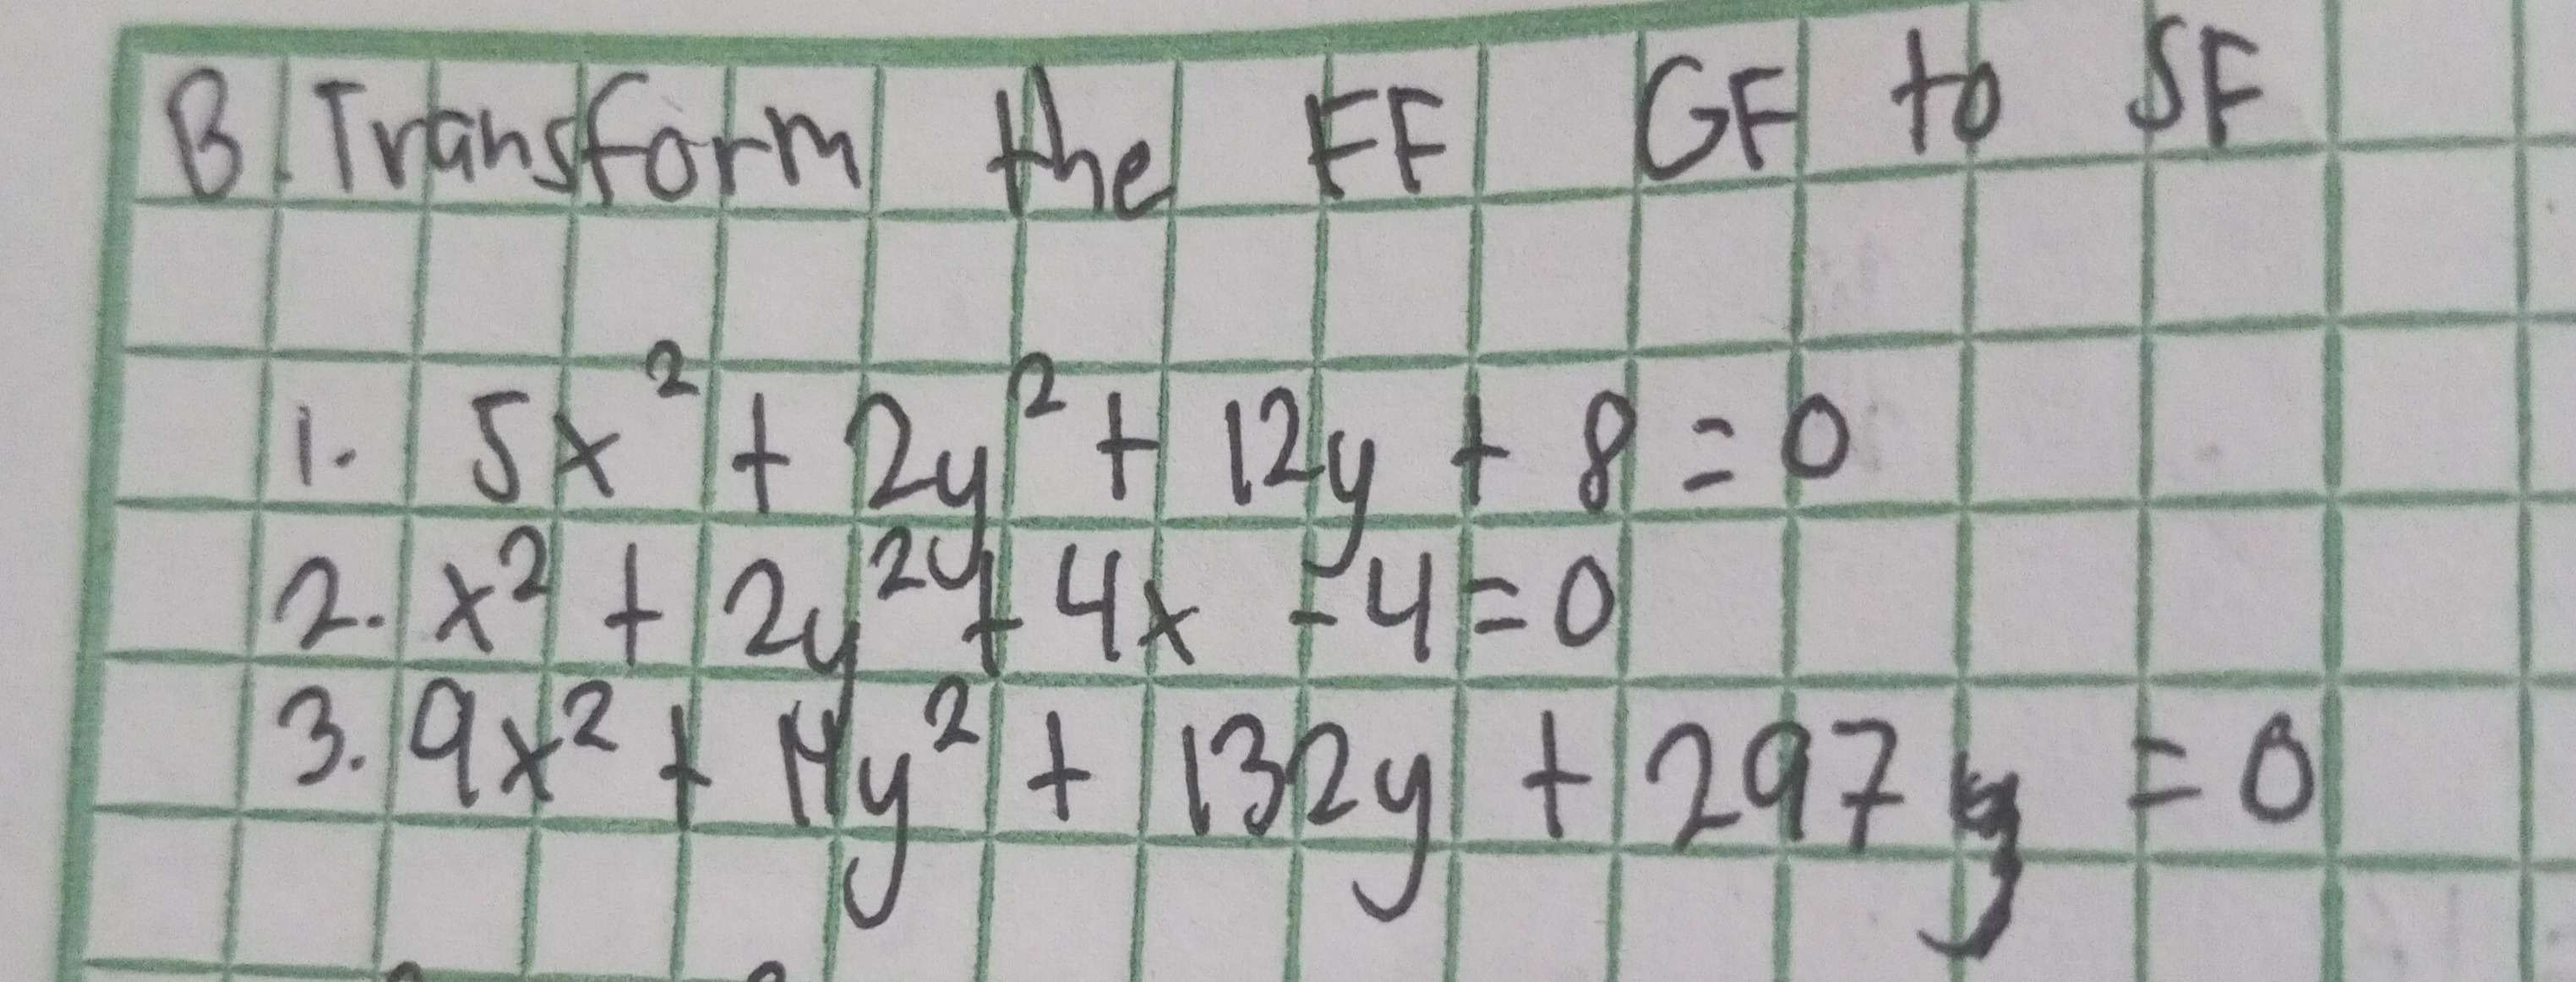 B. Transform the FF GF to SF
1. 5x² + 2y² + 12y + 8 = 0
2. x² + 2y² + 4x - 4 = 0
3. 9x² + y² + 132y + 297 = 0